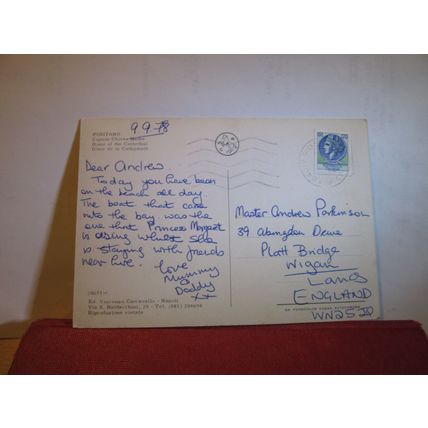 9.9.78
POSITANO
Cupola Chiesa Madre
Dome of the Cathedral
Dôme de la Cathédrale
Dear Andrew
Today you have been
on the beach all day
The boat that came
into the bay was the
one that Princess Margaret
is using whilst she
is staying with friends
near here.
love
Mummy
&
Daddy
xx
Master Andrew Parkinson
39 Abingdon Drive
Platt Bridge
Wigan
Lancs
ENGLAND
WN2 5
Ed. Vincenzo Carcavallo - Napoli
Riproduzione vietata